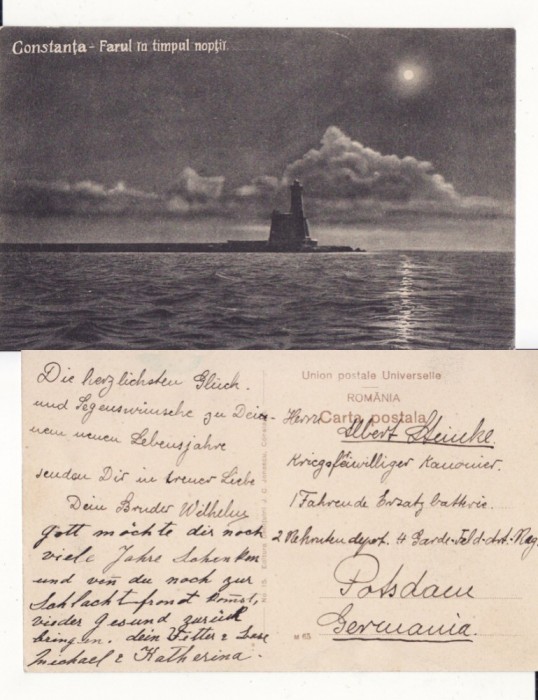 Constanţa - Farul în timpul nopţii.
Die herzlichsten Glück-
und Segenswünsche zu Dei-
nem neuen Lebensjahre
senden Dir in treuer Liebe
Dein Bruder Wilhelm
Gott möchte dir noch
viele Jahre Schenken
und du noch zur
Schlacht front komst,
wieder gesund zurück
bringen. dein Vetter & Base
Michael & Katherina.
Union postale Universelle
ROMÂNIA
Carta postala
Herrn
Albert Heincke.
Kriegsfreiwilliger Kanonier.
1 Fahrende Ersatz batterie.
2 Rekruten depot. 4 Garde-Feld-Art. Reg.
Potsdam
Germania.
M 63